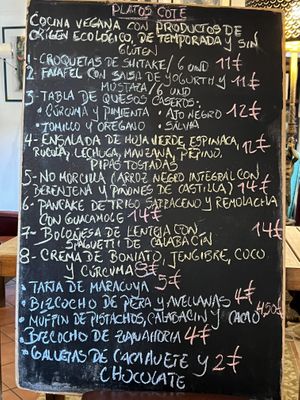 PLATOS COTE
COCINA VEGANA CON PRODUCTOS DE
ORIGEN ECOLÓGICO, DE TEMPORADA Y SIN
GLUTEN
1- CROQUETAS DE SHITAKE/6 UND 11€
2- FALAFEL CON SALSA DE YOGURTH Y
MOSTAZA/6 UND 11€
3- TABLA DE QUESOS CASEROS:
• CÚRCUMA Y PIMIENTA • AJO NEGRO 12€
• TOMILLO Y OREGANO • SALVIA
4- ENSALADA DE HOJA VERDE, ESPINACA,
RUCULA, LECHUGA, MANZANA, PEPINO, 12€
PIPAS TOSTADAS
5- NO MORCILLA (ARROZ NEGRO INTEGRAL CON
BERENJENA Y PIÑONES DE CASTILLA) 14€
6- PANCAKE DE TRIGO SARRACENO Y REMOLACHA
CON GUACAMOLE 14€
7- BOLOÑESA DE LENTEJA CON 14€
SPAGUETTI DE CALABACÍN
8- CREMA DE BONIATO, JENGIBRE, COCO
Y CÚRCUMA 8€
• TARTA DE MARACUYA 5€
• BIZCOCHO DE PERA Y AVELLANAS 4€
• MUFFIN DE PISTACHOS, CALABACIN Y CACAO 4,50€
• BIZCOCHO DE ZANAHORIA 4€
• GALLETAS DE CACAHUETE Y 2€
CHOCOLATE